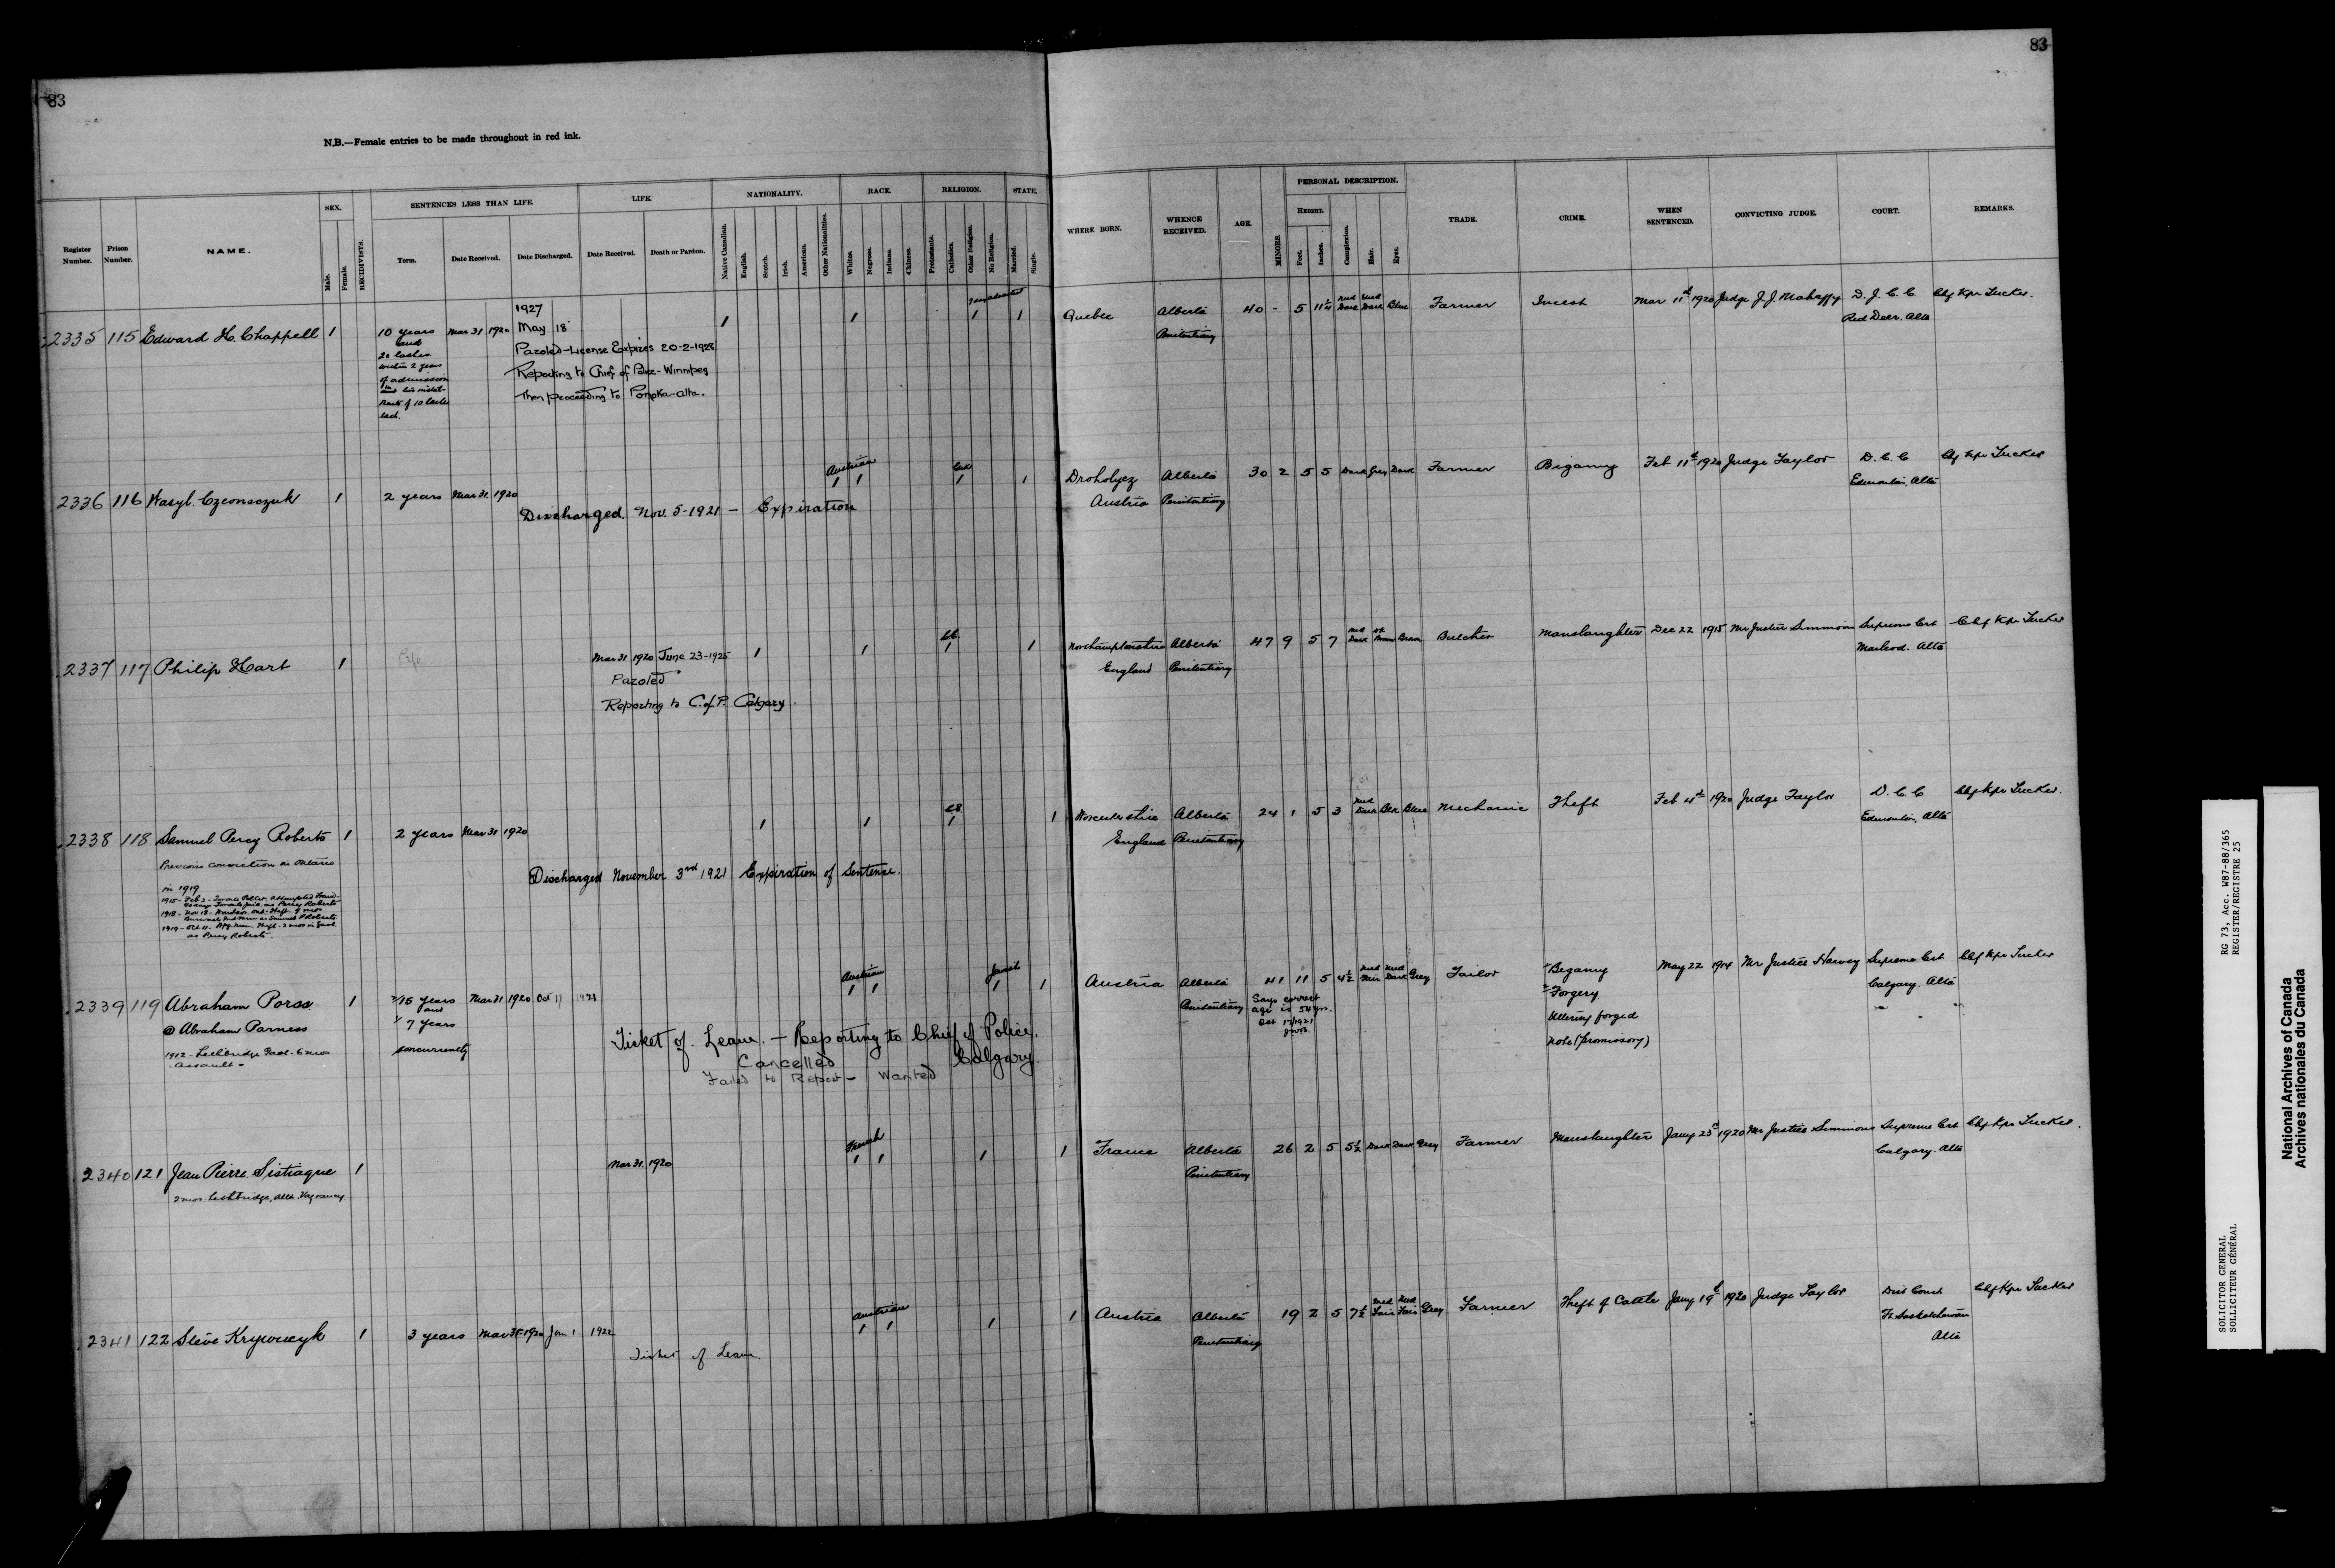 83
83
N.B.—Female entries to be made throughout in red ink.
Register Number.
Prison Number.
NAME.
SEX.
Male.
Female.
RECIDIVISTS.
SENTENCES LESS THAN LIFE.
Term.
Date Received.
Date Discharged.
LIFE.
Date Received.
Death or Pardon.
NATIONALITY.
Native Canadian.
English.
Scotch.
Irish.
American.
Other Nationalities.
RACE.
Whites.
Negroes.
Indians.
Chinese.
RELIGION.
Protestants.
Catholics.
Other Religion.
No Religion.
STATE.
Married.
Single.
WHERE BORN.
WHENCE RECEIVED.
AGE.
MINORS.
PERSONAL DESCRIPTION.
HEIGHT.
Feet.
Inches.
Complexion.
Hair.
Eyes.
TRADE.
CRIME.
WHEN SENTENCED.
CONVICTING JUDGE.
COURT.
REMARKS.
2335 115 Edward H. Chappell 1 10 years Mar 31 1920 1 1 1 1 Quebec Alberta 40 - 5 11¼ Med Dark Med Dark Blue Farmer Incest Mar 11th 1920 Judge J.J. Mahaffy D.J.C.C. Chf Kpr Tucker.
1927
May 18
and
20 lashes
within 2 years
of admission
Paroled-License Expires 20-2-1928
Reporting to Chief of Police-Winnipeg
Then proceeding to Ponoka-Alta.
of 10 lashes
each.
Penitentiary
Red Deer. Alta
2336 116 Wasyl. 1 2 years Mar 31 1920 Austrian 1 1 1 1 Alberta 30 2 5 5 Dark Grey Dark Farmer Bigamy Feb 11th 1920 Judge Taylor D.C.C Chf Kpr Tucker
Austria Penitentiary
Edmonton. Alta
Discharged. Nov. 5-1921 - Expiration
2337 117 Philip Hart 1 Mar 31 1920 June 23-1925 1 1 1 1 Northamptonshire Alberta 47 9 5 7 Med Dark Dk Brown Brown Butcher Manslaughter Dec 22 1915 Mr Justice Simmons Supreme Crt Chf Kpr Tucker
England Penitentiary
Macleod. Alta
Paroled
Reporting to C. of P. Calgary
2338 118 Samuel Percy Roberts 1 2 years Mar 31 1920 1 1 1 1 Worcestershire Alberta 24 1 5 3 Med Dark Blk Blue Mechanic Theft Feb 4th 1920 Judge Taylor D.C.C Chf Kpr Tucker.
England Penitentiary
Edmonton, Alta
Previous conviction in Ontario
in 1919
Discharged November 3rd 1921 Expiration of Sentence.
as Percy Roberts.
2339 119 Abraham Porss 1 15 years Mar 31 1920 Oct 17 Austrian 1 1 Jewish 1 1 Austria Alberta 41 11 5 4½ Med Fair Med Dark Grey Tailor Bigamy May 22 1914 Mr Justice Harvey Supreme Crt Chf Kpr Tucker
@ Abraham Parness
and
7 years
concurrently
Penitentiary
Says correct
age is 54 yrs.
Oct 17/1921
Forgery
Uttering forged
note (promissory)
Calgary. Alta
1912 - Lethbridge Gaol - 6 mos
Assault -
Ticket of Leave. - Reporting to Chief of Police.
Cancelled Calgary.
Failed to Report - Wanted
2340 121 Jean Pierre Sistiague 1 Mar 31. 1920 French 1 1 1 1 France Alberta 26 2 5 5½ Dark Dark Grey Farmer Manslaughter Jany 23rd 1920 Mr Justice Simmons Supreme Crt Chf Kpr Tucker.
2 mos. Lethbridge, Alta. Vagrancy
Penitentiary
Calgary. Alta
2341 122 Steve 1 3 years Mar 31 1920 Jan 1 1922 Austrian 1 1 1 1 Austria Alberta 19 2 5 7½ Med Fair Med Fair Grey Farmer Theft of Cattle Jany 19th 1920 Judge Taylor Dist Court Chf Kpr Tucker
Penitentiary
Ft. Saskatchewan
Alta
Ticket of Leave.
RG 73, Acc. W87-88/365
REGISTER/REGISTRE 25
SOLICITOR GENERAL
SOLLICITEUR GÉNÉRAL
National Archives of Canada
Archives nationales du Canada